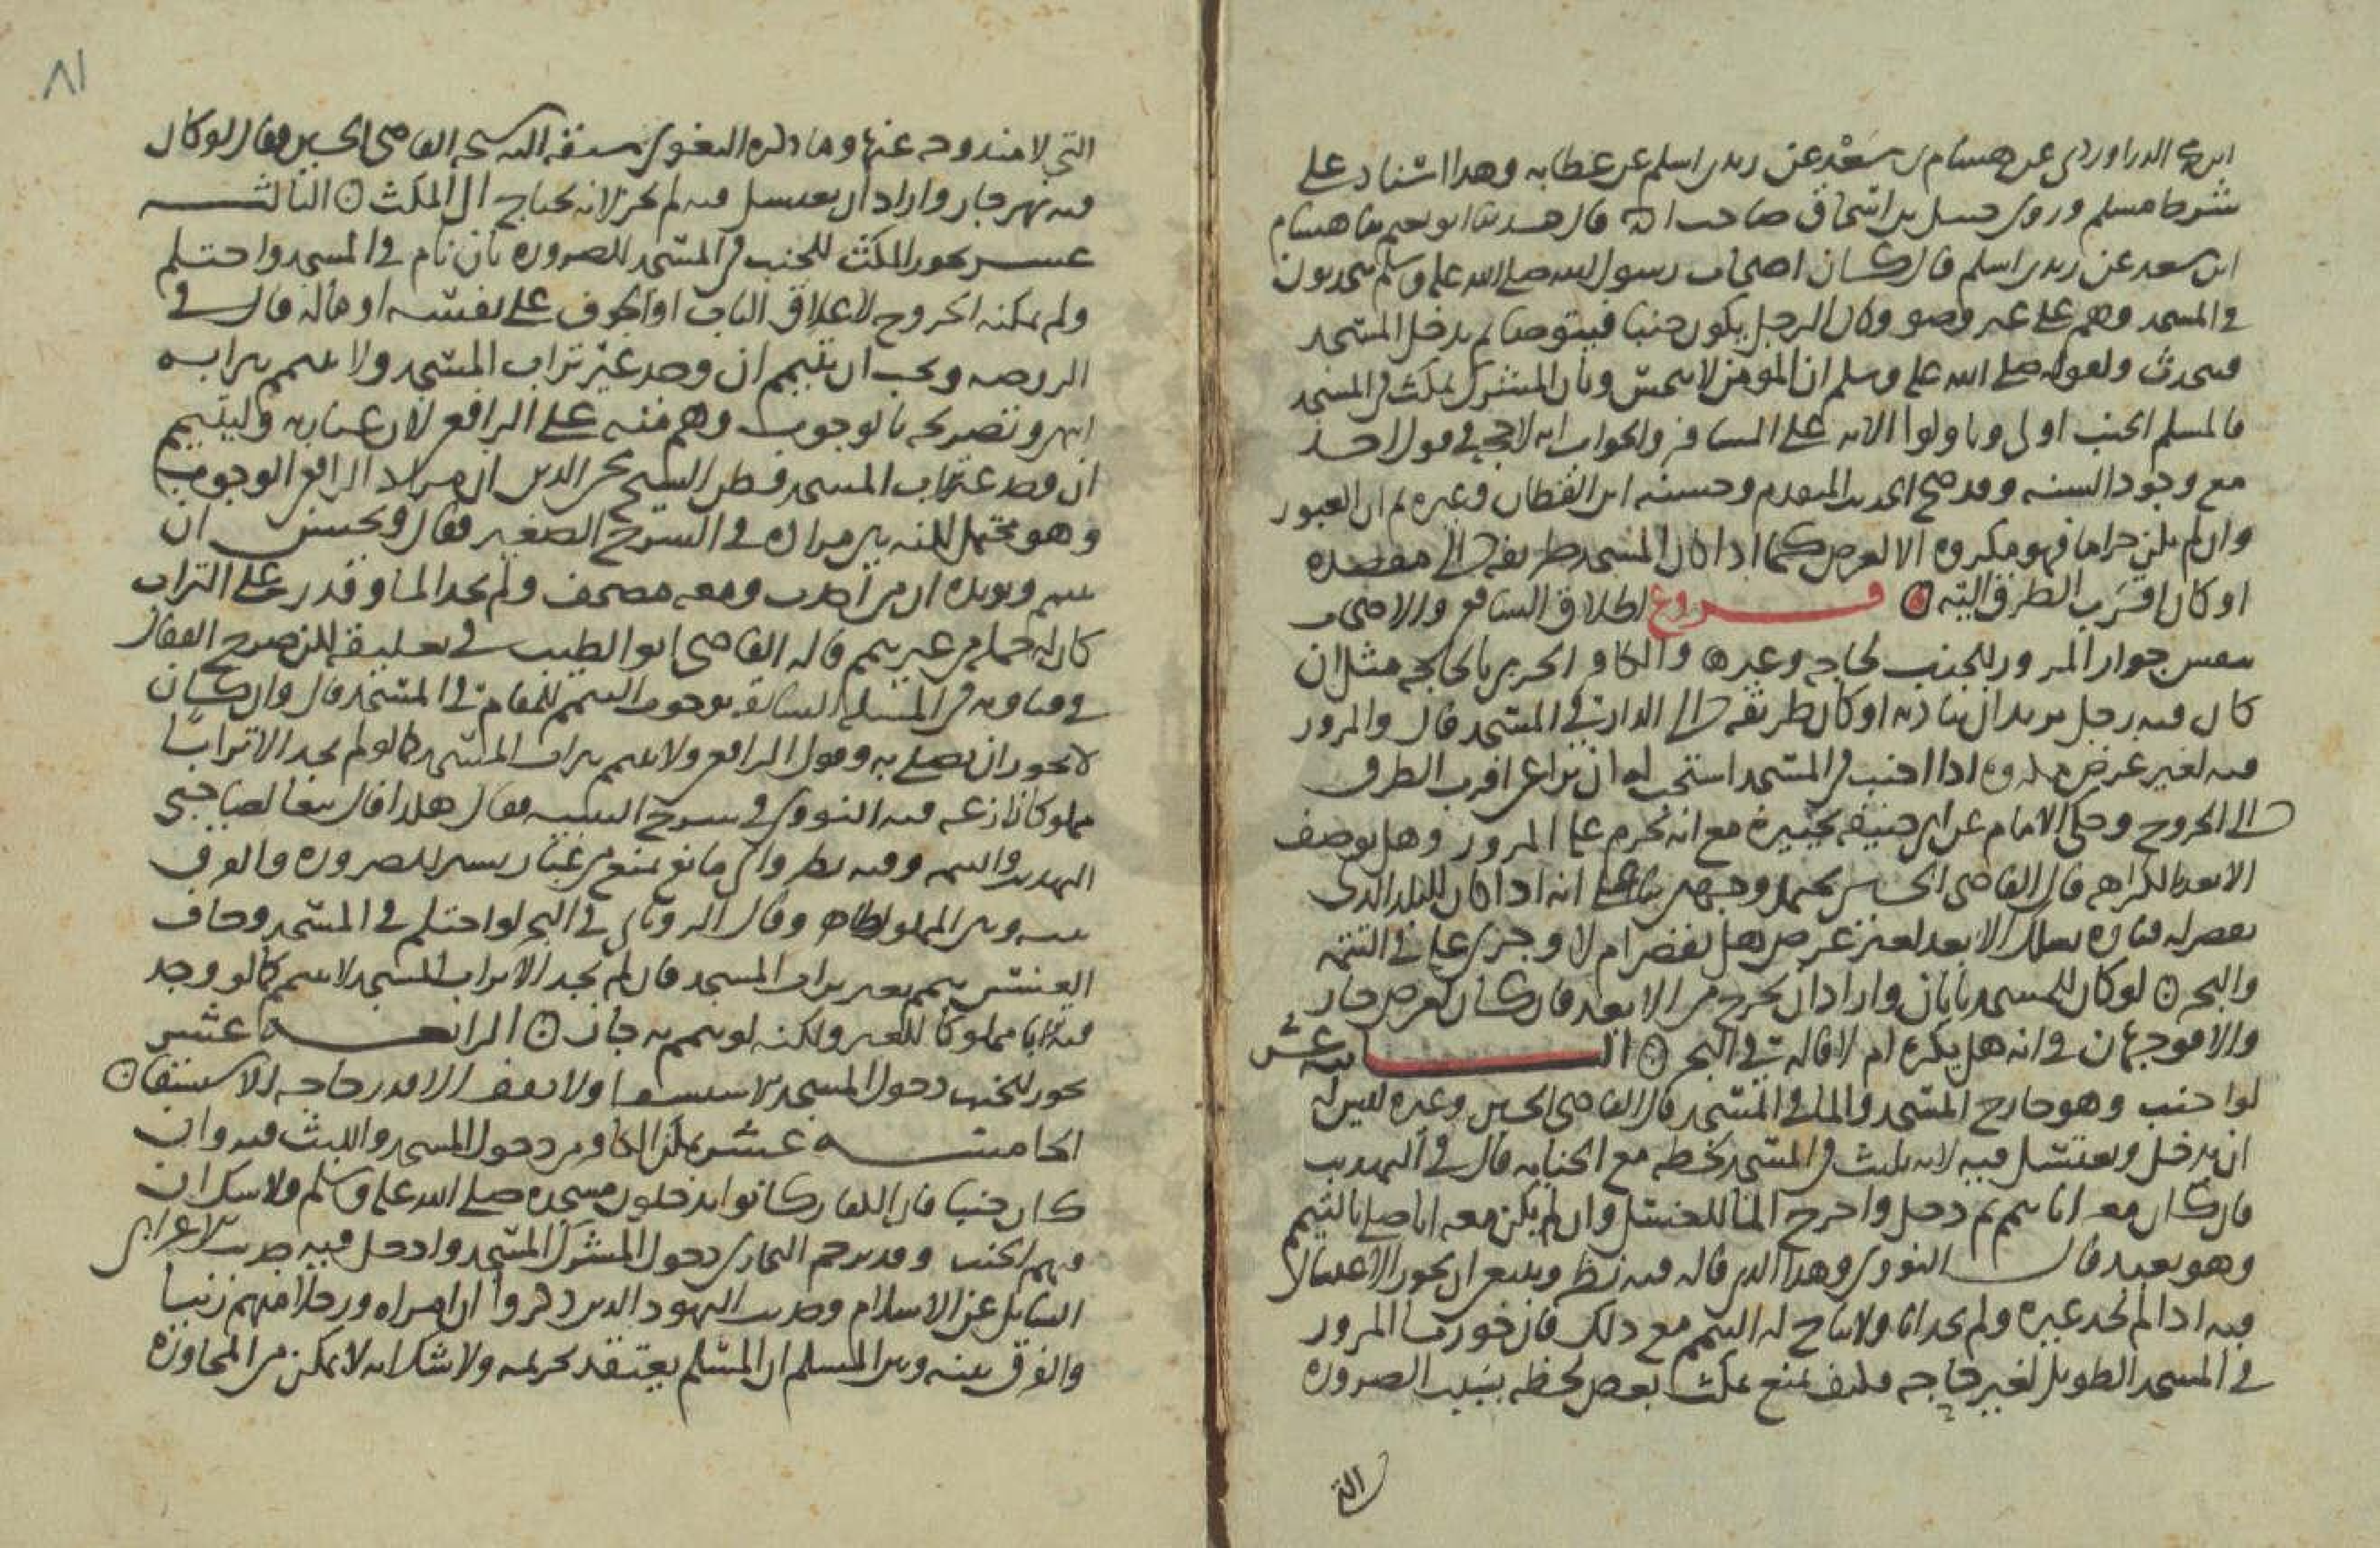 الدراوردي عن هشام بن سعد عن زيد بن اسلم عن عطا به وهذا اسناد على
شرط مسلم وروى حنبل بن اسحاق صاحب قال حدثنا ابو نعيم ثنا هشام
ابن سعد عن زيد بن اسلم قال كان اصحاب رسول الله صلى الله عليه وسلم يتحدثون
في المسجد وهم على غير وضوء وكان الرجل يكون جنبا فيتوضا ثم يدخل المسجد
فيتحدث ولقوله صلى الله عليه وسلم ان المومن لا ينجس وبان المشرك يمكث في المسجد
فالمسلم الجنب اولى وتاولوا الاية على المسافر والجواب انه لا حجة في قول احد
مع وجود السنة وقد صح الحديث المتقدم وحسنه ابن القطان وغيره ثم ان العبور
وان لم يكن حراما فهو مكروه الا لغرض كما اذا كان المسجد طريقه الى مقصده
او كان اقرب الطرق اليه فروع اطلاق الشافعي والاصحاب
يقتضي جواز المرور للجنب لحاجة وغيرها والكافي الحريري بالحاجة مثل ان
كان فيه رجل يريد ان يناديه او كان طريقه الى الدار في المسجد قال والمرور
فيه لغير غرض اذا اجنب في المسجد استحب له ان يراعي اقرب الطرق
الى الخروج وحكى الامام عن ابي حنيفة تخييره مع انه يحرم عليه المرور وهل يوصف
الابعد بالكراهة قال القاضي الحسين يحتمل وجهين بناء على انه اذا كان للبلد الذي
يقصر له فتاوه بسلك الابعد لغير غرض هل يقصر ام لا وجرى عليه في التتمة
والبحر لو كان للمسجد بابان واراد ان يخرج من الابعد فان كان لغرض جاز
والا فوجهان في انه هل يكره ام لا قاله في البحر الثانية عشر
لو اجنب وهو خارج المسجد والما في المسجد قال القاضي الحسين وغيره ليس له
ان يدخل ويغتسل فيه لانه يلبث في المسجد لحظة مع الجنابة قال في التهذيب
فان كان معه انا تيمم ثم دخل واخرج الما للغسل وان لم يكن معه انا صلى بالتيمم
وهو بعيد قال النووي وهذا الذي قاله فيه نظر وينبغي ان يجوز الاغتسال
فيه اذا لم يجد غيره ولم يجد انا ولا يباح له التيمم مع ذلك فان جوزنا المرور
في المسجد الطويل لغير حاجة فكيف نمنع مكث بعض لحظة بسبب الضرورة
التي
٨١
التي لا مندوحة عنها وما ذكره البغوي سبقه اليه شيخه القاضي الحسين فقال لو كان
فيه نهر جار واراد ان يغتسل فيه لم يجز لانه يحتاج الى المكث الثالثة
عشر يجوز المكث للجنب في المسجد للضرورة بان نام في المسجد واحتلم
ولم يمكنه الخروج لاغلاق الباب او الخوف على نفسه او ماله قال في
الروضة ويجب ان يتيمم ان وجد غير تراب المسجد ولا يتيمم بترابه
انتهى وتصريحه بالوجوب وهم منه على الرافعي لان عبارته وليتيمم
ان وجد غير تراب المسجد فظن الشيخ محيي الدين ان مراد الرافعي الوجوب
وهو محتمل لكنه بين مراده في الشرح الصغير فقال ويحسن ان
يتيمم ويويده ان من احدث ومعه مصحف ولم يجد الما وقدر على التراب
كان له حمله من غير تيمم قاله القاضي ابو الطيب في تعليقه لكن صرح القفال
في فتاويه في المسلة السالفة بوجوب التيمم للمقام في المسجد قال وان كان
لا يجوز ان يصلي به وقول الرافعي ولا يتيمم بتراب المسجد كما لو لم يجد الا ترابا
مملوكا نازعه فيه النووي في شرح التنبيه فقال هكذا قال تبعا لصاحبي
التهذيب والتتمة وفيه نظر واي مانع يمنع من غبار يسير للضرورة والفرق
بينه وبين المملوك ظاهر وقال الروياني في البحر لو احتلم في المسجد وخاف
العسس يتيمم بغير تراب المسجد فان لم يجد الا تراب المسجد لا يتيمم كما لو وجد
ترابا مملوكا للغير ولكنه لو تيمم به جاز الرابعة عشر
يجوز للجنب دخول المسجد للاستسقا ولا يقف الا قدر حاجة الاستسقا
الخامسة عشر يمكن الكافر من دخول المسجد واللبث فيه وان
كان جنبا فان الكفار كانوا يدخلون مسجده صلى الله عليه وسلم ولا شك ان
فيهم الجنب وقد ترجم البخاري دخول المشرك المسجد وادخل فيه حديث الاعرابي
السايل عن الاسلام وحديث اليهود الذين ذكروا ان امراة ورجلا منهم زنيا
والفرق بينه وبين المسلم ان المسلم يعتقد تحريمه ولا شك انه لا يمكن من المجاورة